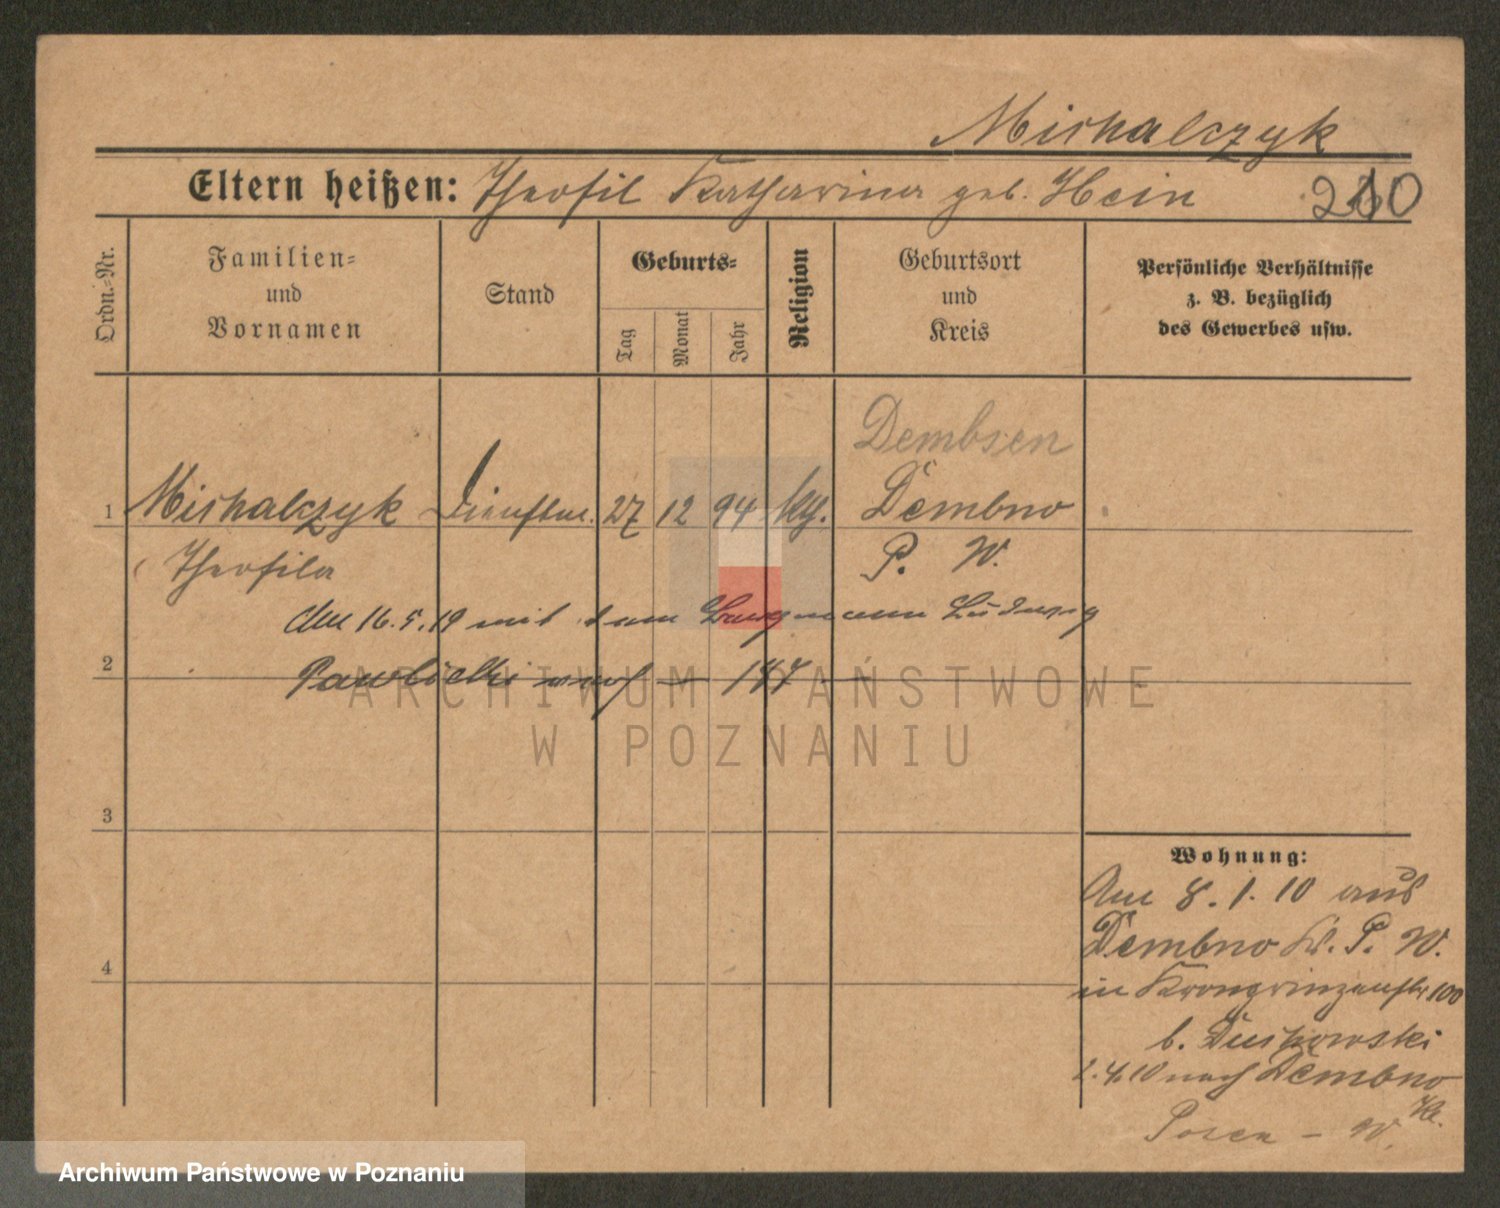 Michalczyk
Eltern heißen: Theofil Katharina geb. Hein 210
Ordn.=Nr.
Familien= und Vornamen
Stand
Geburts=
Tag
Monat
Jahr
Religion
Geburtsort und Kreis
Persönliche Verhältnisse
z. B. bezüglich
des Gewerbes usw.
Dembsen
1 Michalczyk Dienstm. 27 12 94 kth. Dembno
Theofila P. W.
Am 16.5.19 mit dem Ludwig
2 Pawlicki verh 187
ARCHIWUM PAŃSTWOWE
W POZNANIU
3
Wohnung:
Am 8.1.10 aus
Dembno K. P. W.
4
in Kronprinzenstr 100
b.
2.4.10 nach Dembno
Posen – W.
Archiwum Państwowe w Poznaniu